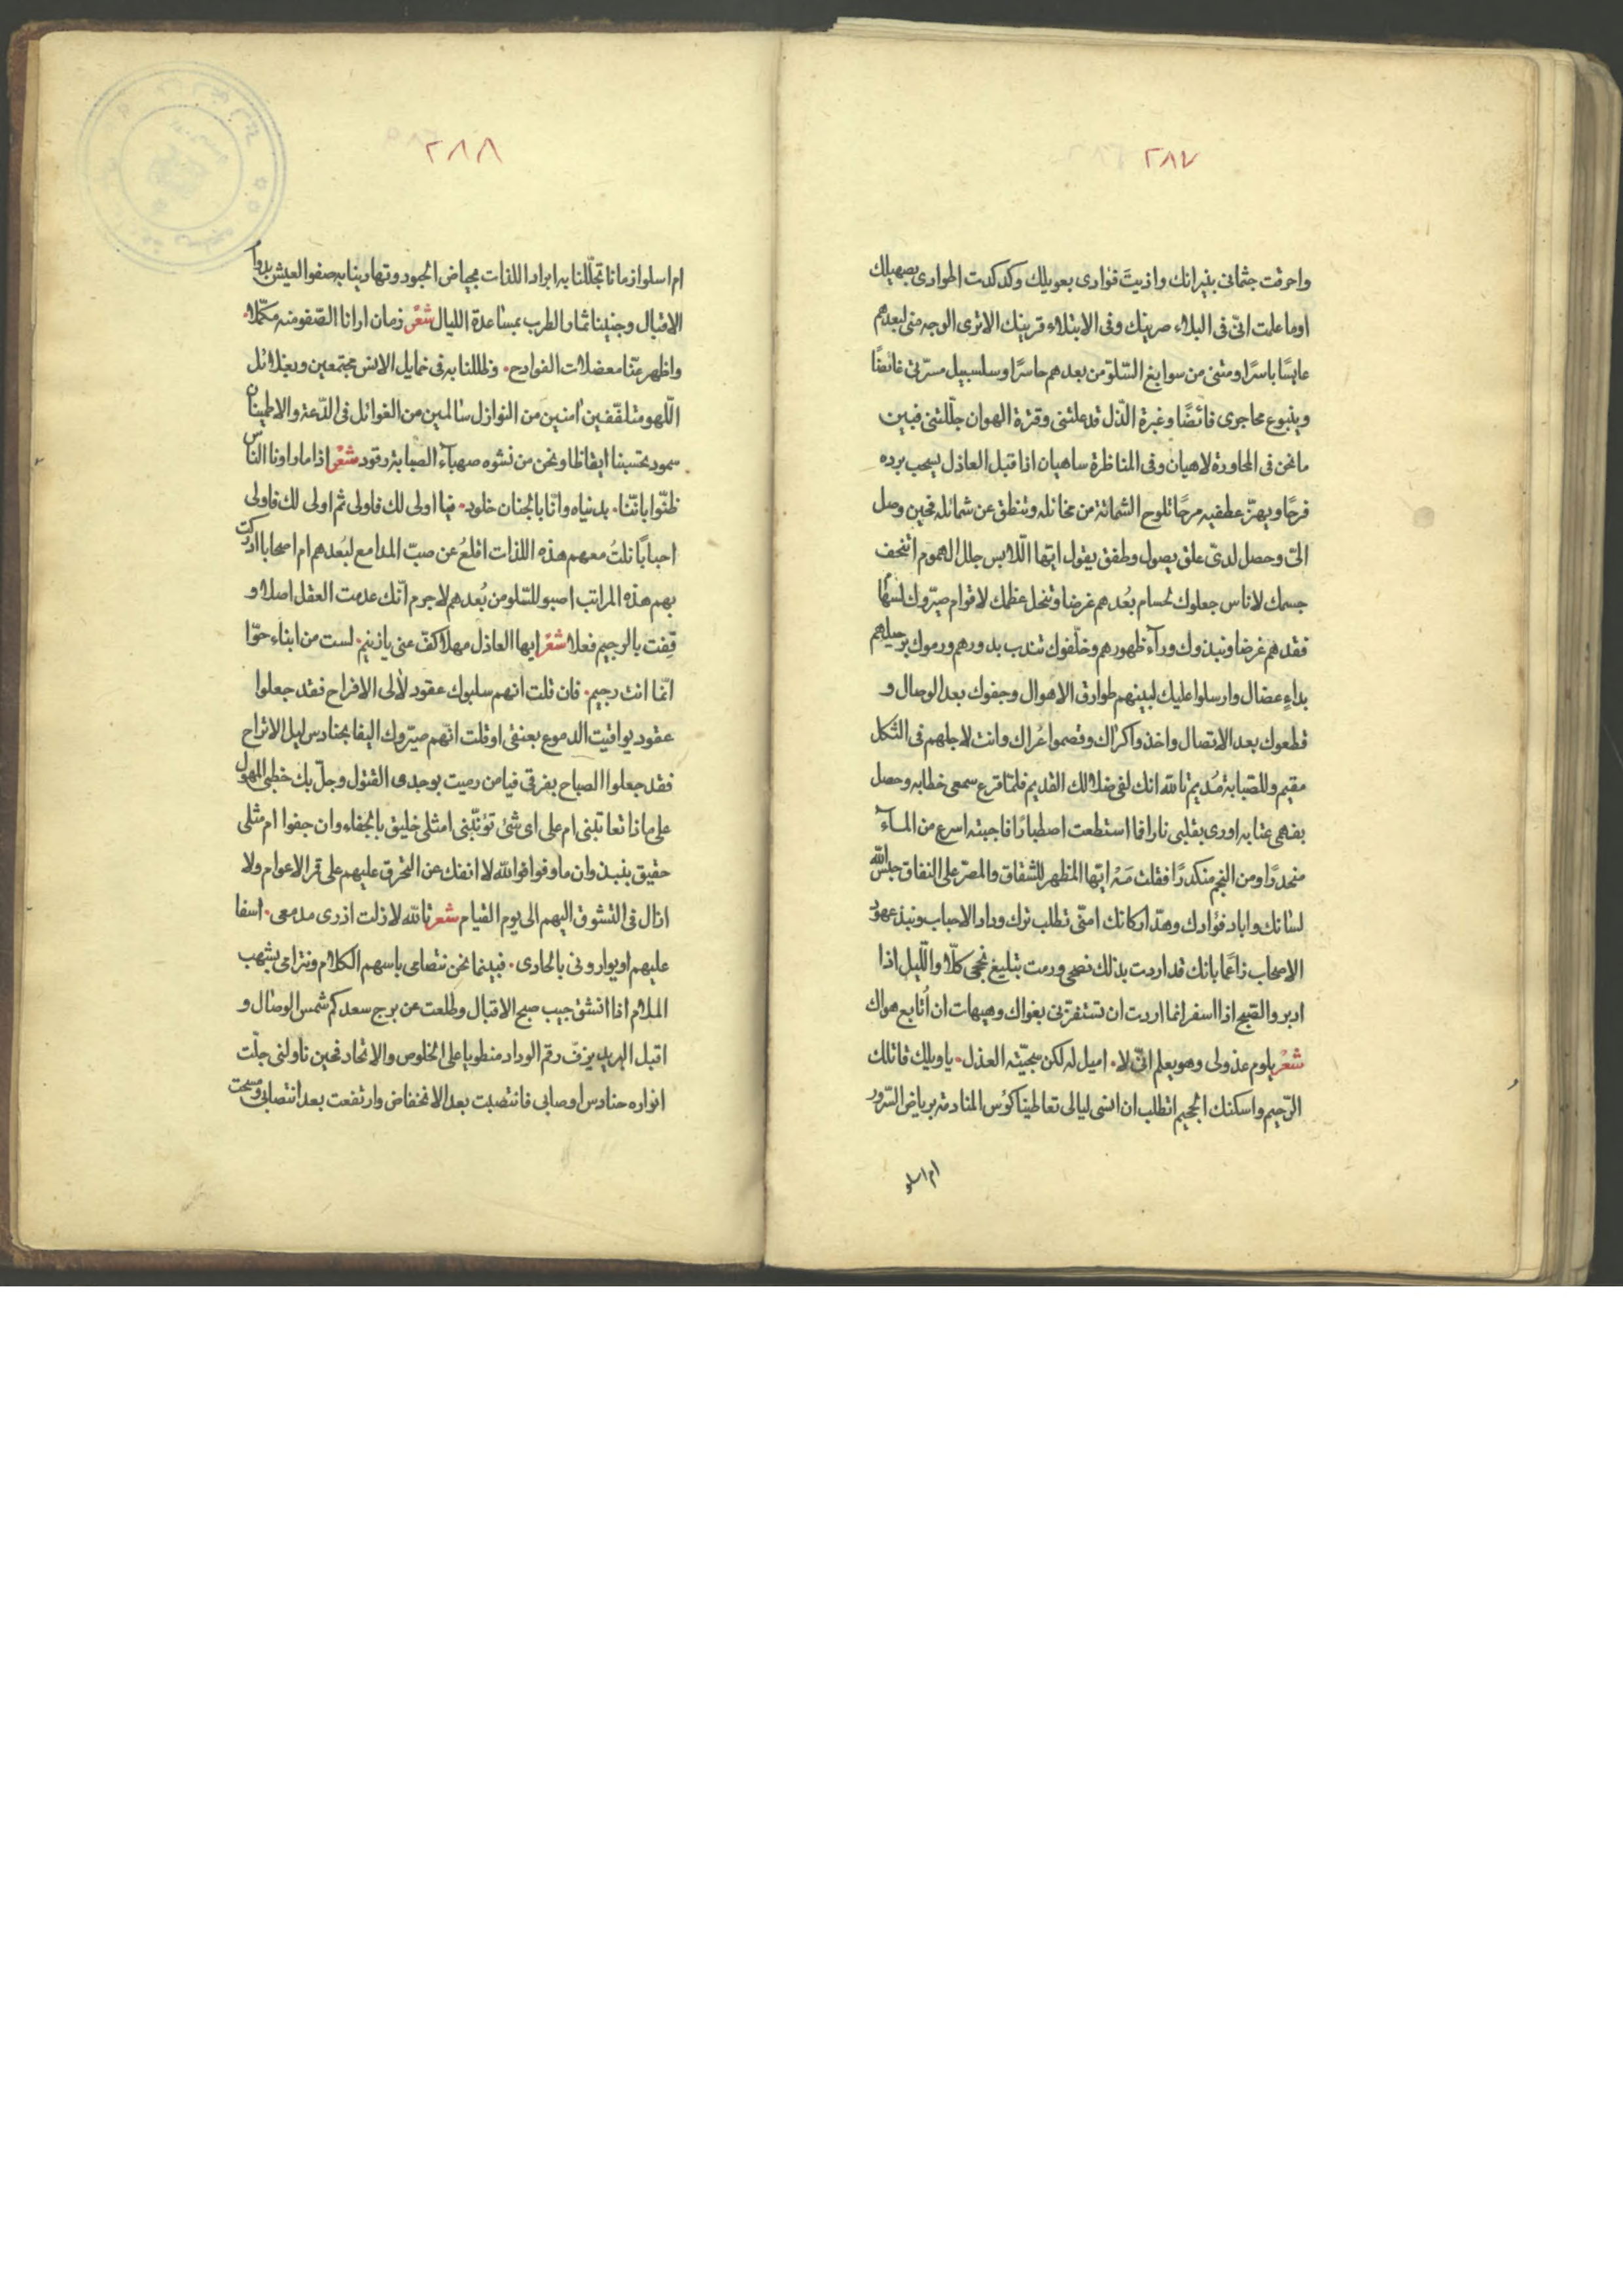 ٢٨٧
واحرقت جثمانى بنيرانك واذيبتَ فؤادى بعويلك وكدكدت اطوادى بصهيلك
اوما علمت انّى فى البلاء صرينك وفى الابتلاء قرينك الا ترى الوجه منى لبعدهم
عابسًا باسرًا ومتنى من سوابغ السّلوّ من بعدهم حاسرًا وسلسبيل مسرّتى غائضًا
وينبوع محاجرى فائضًا وغبرة الذّل قد علتنى وقترة الهوان جلّلتنى فبين
ما نحن فى المحاورة لاهيان وفى المناظرة ساهيان اذا قبل العاذل يسحب برده
فرحًا ويهزّ عطفيه مرحًا تلوح الشماتة من مخائله وتنطق عن شمائله فحين وصل
الىّ وحصل لدىّ علق يصول وطفق يقول ايّها اللّابس حلل الهموم اتنحف
جسمك لاناس جعلوك لحسام بُعدهم غرضا وتنحل عظمك لاقوام صيّروك لسهام
فقدهم غرضا ونبذوك ورآء ظهورهم وخلّفوك تندب بدورهم ورموك برحيلهم
بداءٍ عضال وارسلوا عليك لبينهم طوارق الاهوال وجفوك بعد الوصال و
قطعوك بعد الاتصال واخذوا كراك وفصموا عُراك وانت لاجلهم فى الثكل
مقيم وللصّبابة مُديم تالله انك لفى ضلالك القديم فلمّا قرع سمعى خطابه وحصل
بفهمى عتابه اورى بقلبى نارا فما استطعت اصطبارًا فاجبته اسرع من المآء
منحدرًا ومن النجم منكدرًا فقلت مَهْ ايّها المظهر للشقاق والمصرّ على النفاق حبس الله
لسانك واباد فؤادك وهدّ اركانك امنّى تطلب ترك وداد الاحباب ونبذ عهود
الاصحاب زاعمًا بانك قد اردت بذلك نصحى ورمت بتبليغ نجحى كلّا والّليل اذا
ادبر والصّبح اذا اسفر انما اردت ان تستفزّنى بغواك وهيهات ان اُتابع هواك
شعْر يلوم عذولى وهو يعلم انّى لا. اميل له لكن سجيّته العذل. يا ويلك قاتلك
الرّحيم واسكنك الجحيم اتطلب ان انسى ليالى تعاطينا كؤس المنادمة برياض السّرور
ام اسلو
٢٨٨
ام اسلو ازمانا تجلّلنا به ابراد اللذات بحياض الحبور وتهادينا به صفو العيش بدوام
الاقبال وجنينا ثمار الطرب بمساعدة الليال شعْر زمان ارانا الصّفو منه مكمّلا.
واظهر عنّا معضلات الفوادح. وظللنا به فى خمايل الانس مجتمعين وبغلائل
اللّهو متلفّفين امنين من النوازل سالمين من الغوائل فى الدّعة والاطمينان
سمود تحسبنا ايقاظا ونحن من نشوه صهبآء الصبابة رقود شعْر اذا ما راونا الناس
ظنّوا باننّا. بدنياه وانّا بالجنان خلود. فيا اولى لك فاولى ثم اولى لك فاولى
احبابًا نلتُ معهم هذه اللذات اتلعُ عن صبّ المدامع لبُعدهم ام اصحابا ادركت
بهم هذه المراتب اصبو للسّلو من بُعدهم لا جرم انّك عدمت العقل اصلا و
قِفت بالرجيم فعلا شعْر ايها العاذل مهلا كفّ عنى يا زنيم. لست من ابناء حوّا
انّما انت رجيم. فان قلت انهم سلبوك عقود لألى الافراح فقد جعلوا
عقود يواقيت الدموع بعنقى او قلت انّهم صيّروك اليفا بحنادس ليل الاتراح
فقد جعلوا الصباح بفرقى فيا من رميت بوجدى القتول وجلّ بك خطبى المهول
على ماذا تعاتبنى ام على اى شئ تؤنّبنى امثلى خليق بالجفاء وان جفوا ام مثلى
حقيق بنبذ وان ما وفوا فو الله لا انفك عن التحرق عليهم على مّر الاعوام ولا
ازال فى التشوق اليهم الى يوم القيام شعر تالله لا زلت اذرى مدمعى. اسفا
عليهم او يوارونى بالحادى. فبينما نحن نتصامى باسهم الكلام ونترامى بشهب
الملام اذا انشق جيب صبح الاقبال وطلعت عن برج سعدكم شمس الوصال و
اقبل البريد يزفّ رقم الوداد منطويا على الخلوص والاتحاد فحين ناولنى جلّت
انواره حنادس اوصابى فانتصبت بعد الانخفاض وارتفعت بعد انتصابى ومسحت